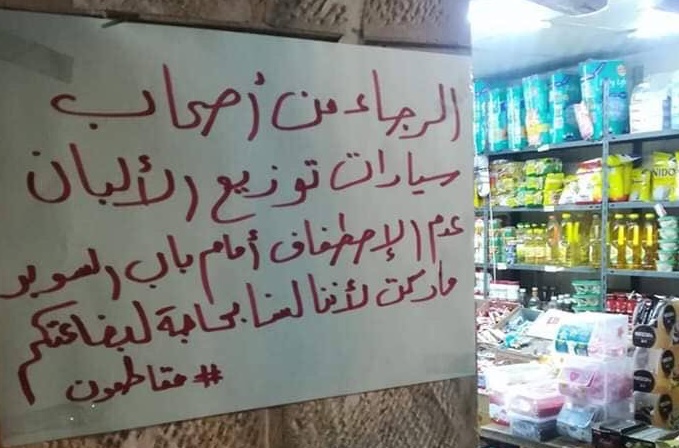 الرجاء من أصحاب
سيارات توزيع الألبان
عدم الإصطفاف أمام باب السوبر
ماركت لأننا لسنا بحاجة لبضاعتكم
#مقاطعون
NIDO